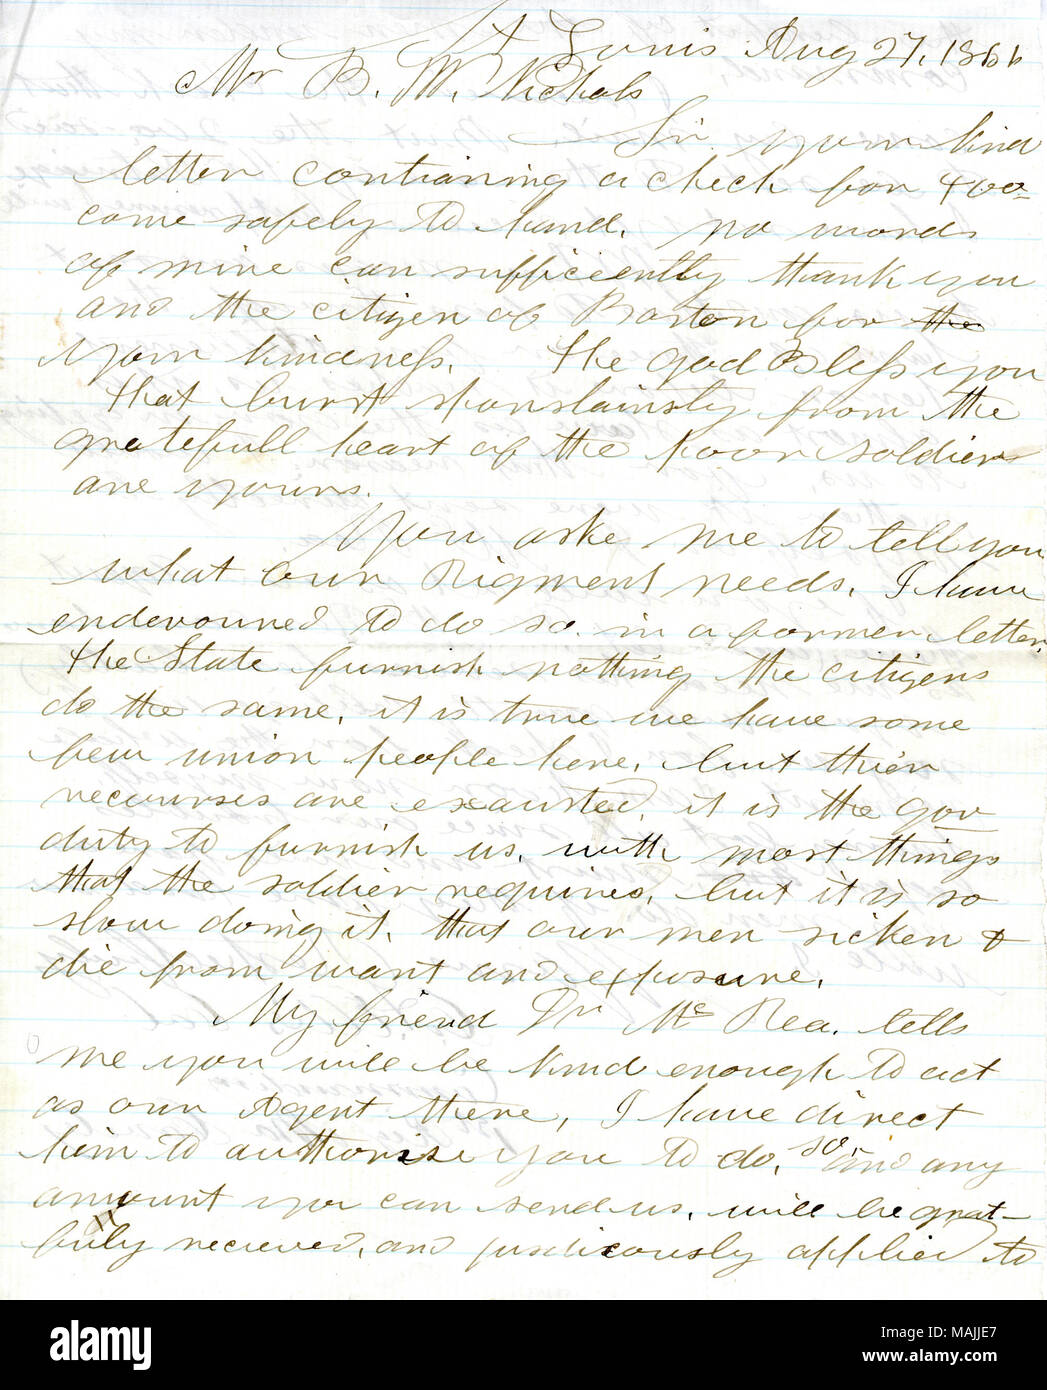 St Louis Aug 27. 1861
Mr B. W. Nichols
Sir your kind
letter containing a check for 400
come safely to hand. no words
of mine can sufficiently thank you
and the citizen of Boston for the
your kindness. the god Bless you
that burst from the
gratefull heart of the poor soldier
are yours.
You aske me to tell you
what our Rigment needs. I have
endevoured to do so in a former letter.
the State furnish nothing the citizens
do the same. it is true we have some
few union people here, but thier
recourses are exausted, it is the gov
duty to furnish us, with most things
that the soldier requires, but it is so
slow doing it, that our men sicken &
die from want and exposure.
My friend Dr McRea. tells
me you will be kind enough to act
as our Agent there, I have direct
him to authorise you to do, so, and any
amount you can send us, will be grat-
fuly recieved, and judicously applied to
alamy
Image ID: MAJJE7
www.alamy.com